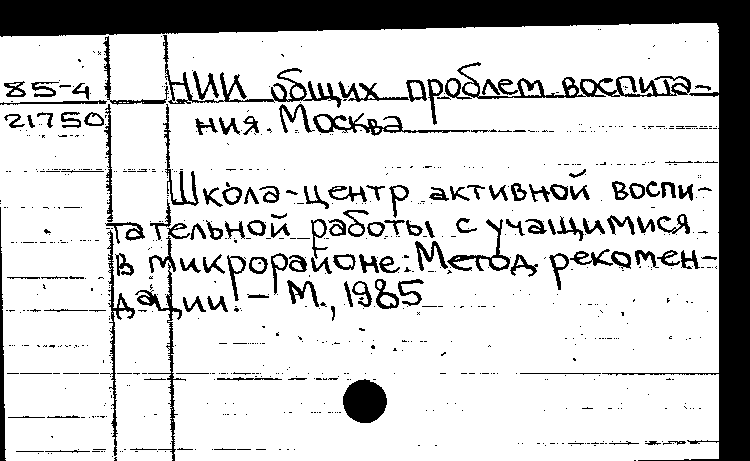 85-4 НИИ общих проблем воспита-
21750 ния. Москва
Школа-центр активной воспи-
тательной работы с учащимися
в микрорайоне: Метод. рекомен-
дации. - М., 1985